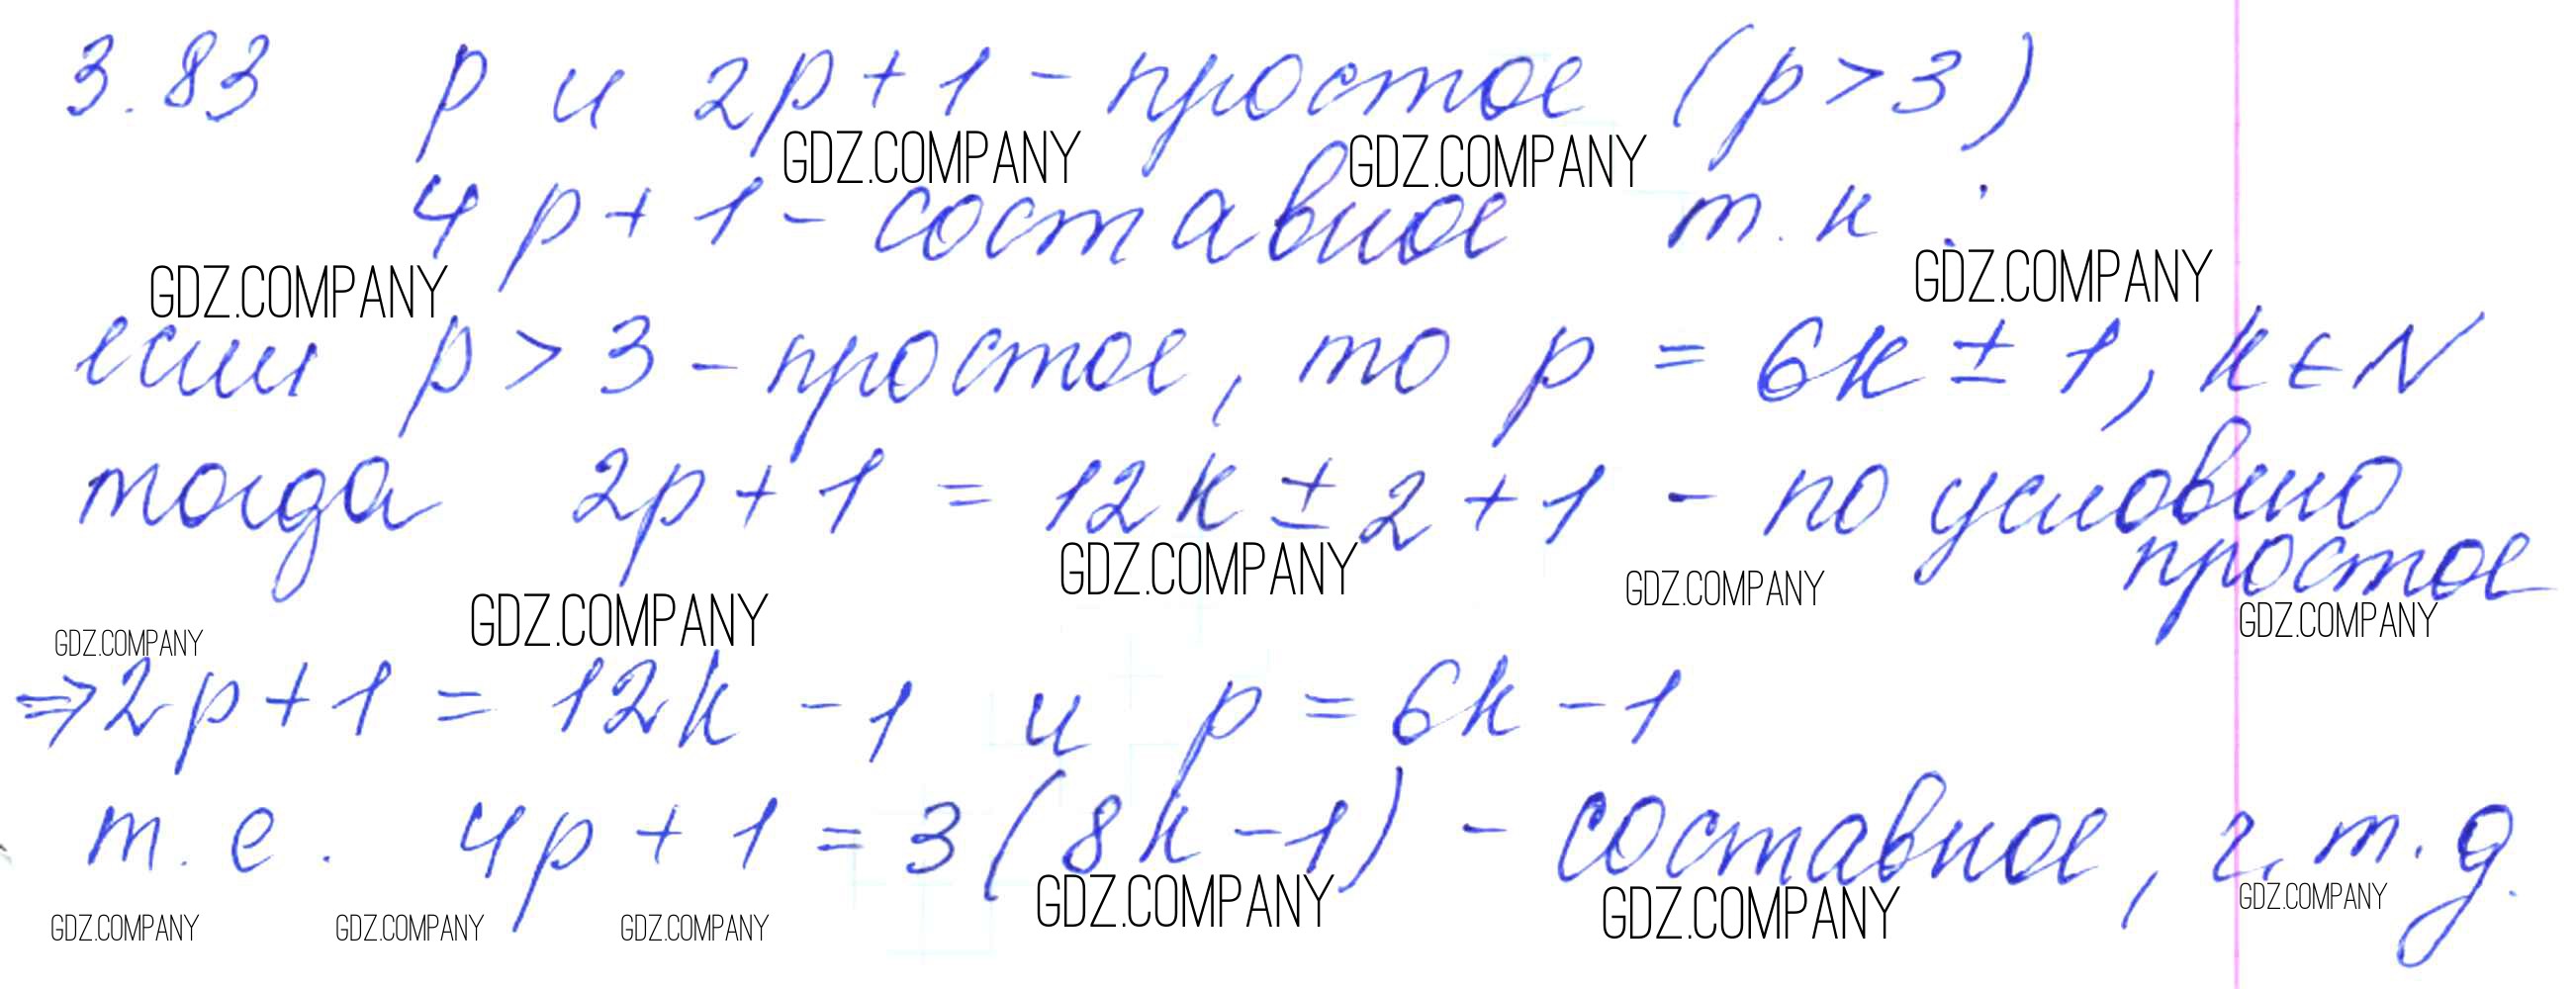 3.83 p и 2p + 1 - простое (p > 3)
GDZ.COMPANY GDZ.COMPANY
4p + 1 - составное т.к:
GDZ.COMPANY GDZ.COMPANY
если p > 3 - простое, то p = 6k ± 1, k ∈ N
тогда 2p + 1 = 12k ± 2 + 1 - по условию
простое
GDZ.COMPANY GDZ.COMPANY
GDZ.COMPANY GDZ.COMPANY GDZ.COMPANY
⇒ 2p + 1 = 12k - 1 и p = 6k - 1
т.е. 4p + 1 = 3(8k - 1) - составное, ч.т.д.
GDZ.COMPANY GDZ.COMPANY GDZ.COMPANY GDZ.COMPANY GDZ.COMPANY GDZ.COMPANY